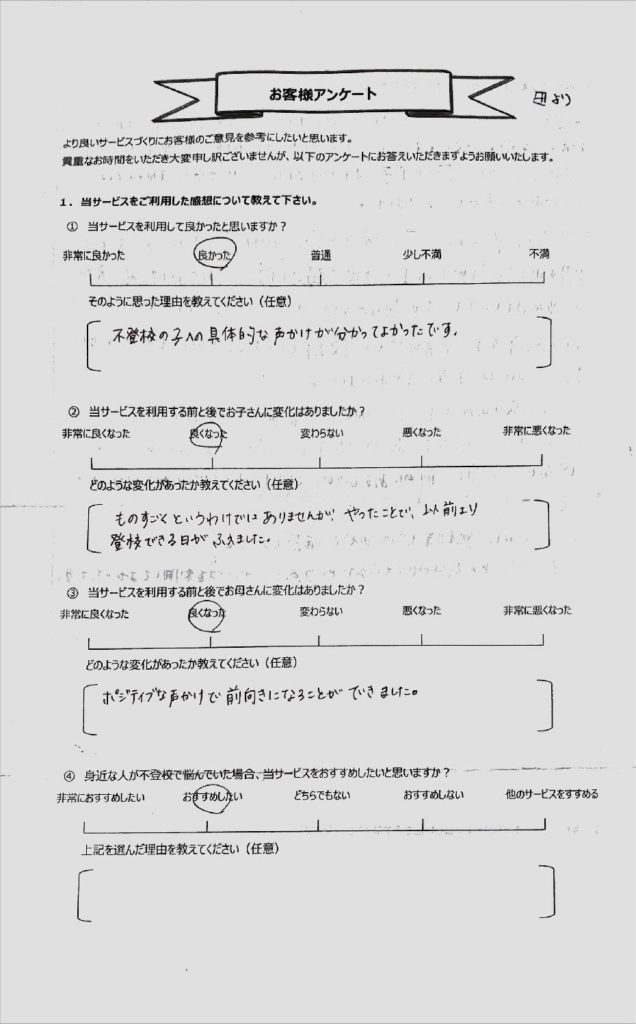 お客様アンケート
より
より良いサービスづくりにお客様のご意見を参考にしたいと思います。
貴重なお時間をいただき大変申し訳ございませんが、以下のアンケートにお答えいただきますようお願いいたします。
1．当サービスをご利用した感想について教えて下さい。
① 当サービスを利用して良かったと思いますか？
非常に良かった 良かった 普通 少し不満 不満
そのように思った理由を教えてください（任意）
不登校の子への具体的な声かけが分かってよかったです。
② 当サービスを利用する前と後でお子さんに変化はありましたか？
非常に良くなった 良くなった 変わらない 悪くなった 非常に悪くなった
どのような変化があったか教えてください（任意）
ものすごくというわけではありませんが、やったことで、以前より
登校できる日がふえました。
③ 当サービスを利用する前と後でお母さんに変化はありましたか？
非常に良くなった 良くなった 変わらない 悪くなった 非常に悪くなった
どのような変化があったか教えてください（任意）
ポジティブな声かけで前向きになることができました。
④ 身近な人が不登校で悩んでいた場合、当サービスをおすすめしたいと思いますか？
非常におすすめしたい おすすめしたい どちらでもない おすすめしない 他のサービスをすすめる
上記を選んだ理由を教えてください（任意）